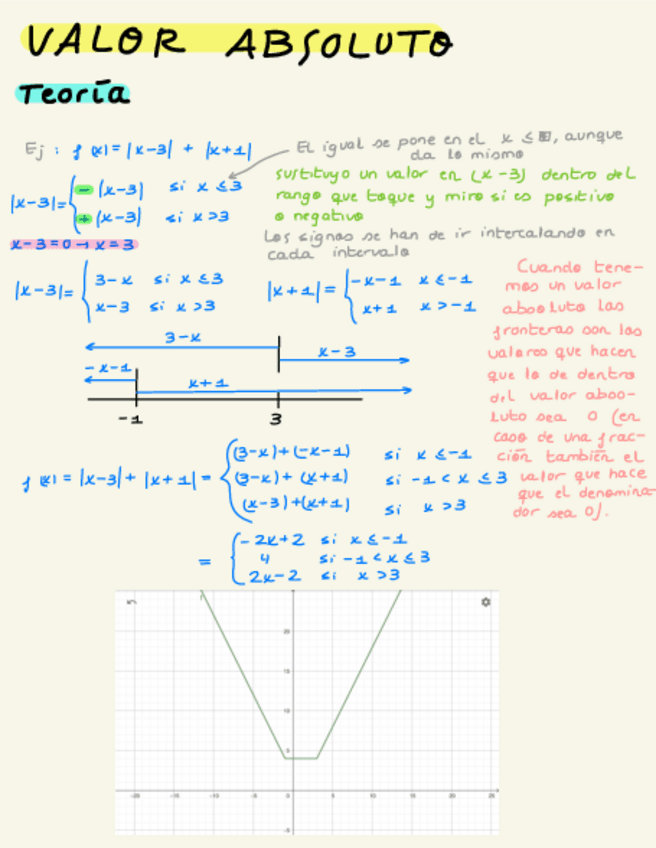 VALOR ABSOLUTO
Teoría
Ej : f(x) = |x-3| + |x+1|
El igual se pone en el x ≤, aunque
da lo mismo
|x-3| = { - (x-3) si x ≤ 3
+ (x-3) si x > 3
x-3=0 → x=3
sustituyo un valor en (x-3) dentro del
rango que toque y miro si es positivo
o negativo
Los signos se han de ir intercalando en
cada intervalo
|x-3| = { 3-x si x ≤ 3
x-3 si x > 3
|x+1| = { -x-1 x ≤ -1
x+1 x > -1
Cuando tene-
mos un valor
absoluto las
fronteras son los
valores que hacen
que lo de dentro
del valor abso-
luto sea 0 (en
caso de una frac-
ción también el
valor que hace
que el denomina-
dor sea 0).
3-x
x-3
-x-1
x+1
-1 3
f(x) = |x-3| + |x+1| = { (3-x)+(-x-1) si x ≤ -1
(3-x) + (x+1) si -1 < x ≤ 3
(x-3)+(x+1) si x > 3
= { -2x+2 si x ≤ -1
4 si -1 < x ≤ 3
2x-2 si x > 3
20
15
10
5
-20 -15 -10 -5 0 5 10 15 20 25
-5